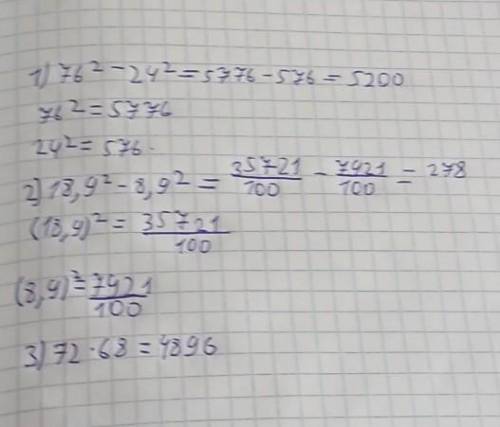 1) 76² - 24² = 5776 - 576 = 5200
76² = 5776
24² = 576.
2) 18,9² - 8,9² = 35721/100 - 7921/100 = 278
(18,9)² = 35721/100
(8,9)² = 7921/100
3) 72 · 68 = 4896